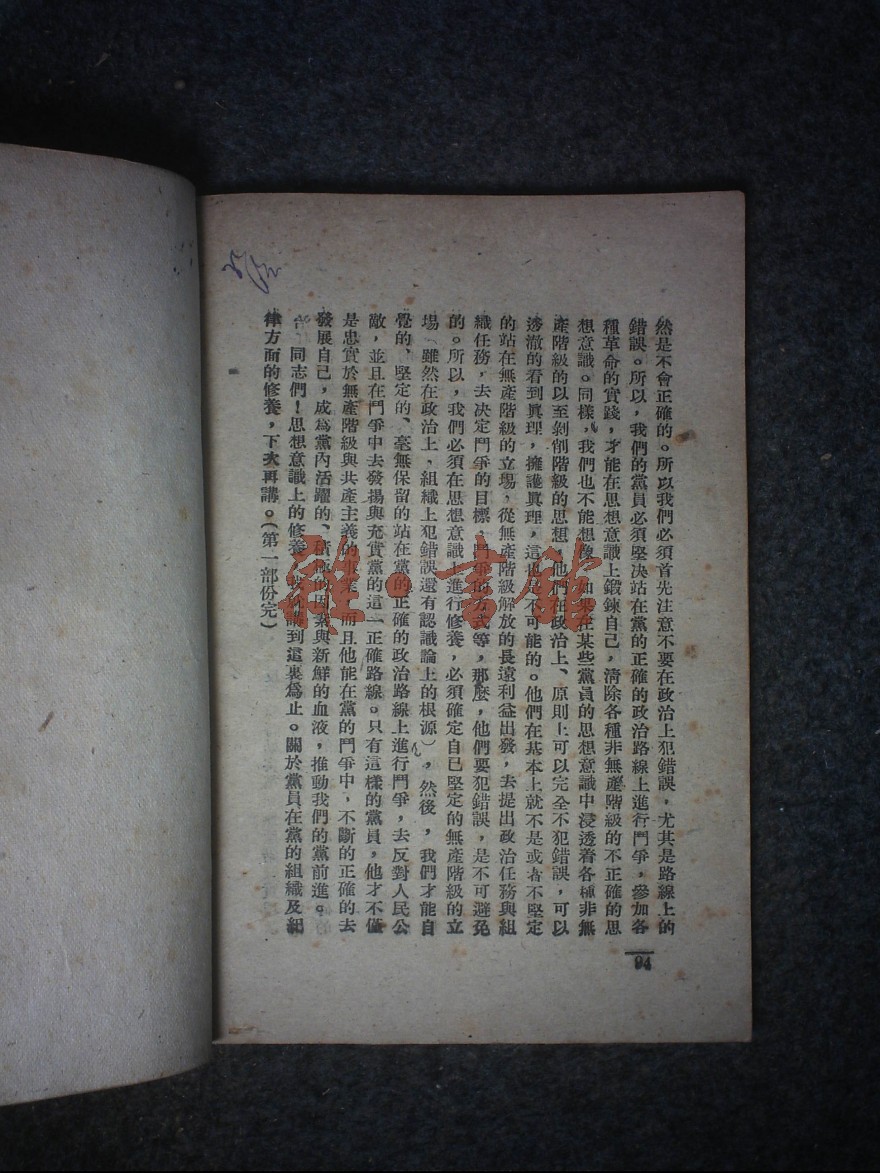 然是不會正確的。所以我們必須首先注意不要在政治上犯錯誤,尤其是路線上的
錯誤。所以,我們的黨員必須堅决站在黨的正確的政治路線上進行鬥爭,參加各
種革命的實踐,才能在思想意識上鍛鍊自己,清除各種非無產階級的不正確的思
想意識。同樣,我們也不能想像,如果在某些黨員的思想意識中浸透着各種非無
產階級的以至剝削階級的思想,他們在政治上、原則上可以完全不犯錯誤,可以
透澈的看到眞理,擁護眞理,這也是不可能的。他們在基本上就不是或者不堅定
的站在無產階級的立場,從無產階級解放的長遠利益出發,去提出政治任務與組
織任務,去决定鬥爭的目標、鬥爭的方式等,那麼,他們要犯錯誤,是不可避免
的。所以,我們必須在思想意識上進行修養,必須確定自己堅定的無產階級的立
場(雖然在政治上,組織上犯錯誤還有認識論上的根源),然後,我們才能自
覺的、堅定的、毫無保留的站在黨的正確的政治路線上進行鬥爭,去反對人民公
敵,並且在鬥爭中去發揚與充實黨的這一正確路線。只有這樣的黨員,他才不僅
是忠實於無產階級與共產主義的事業,而且他能在黨的鬥爭中,不斷的正確的去
發展自己,成爲黨內活躍的、積極的因素與新鮮的血液,推動我們的黨前進。
同志們!思想意識上的修養,我就講到這裏爲止。關於黨員在黨的組織及紀
律方面的修養,下次再講。(第一部份完)
94
雜·書館